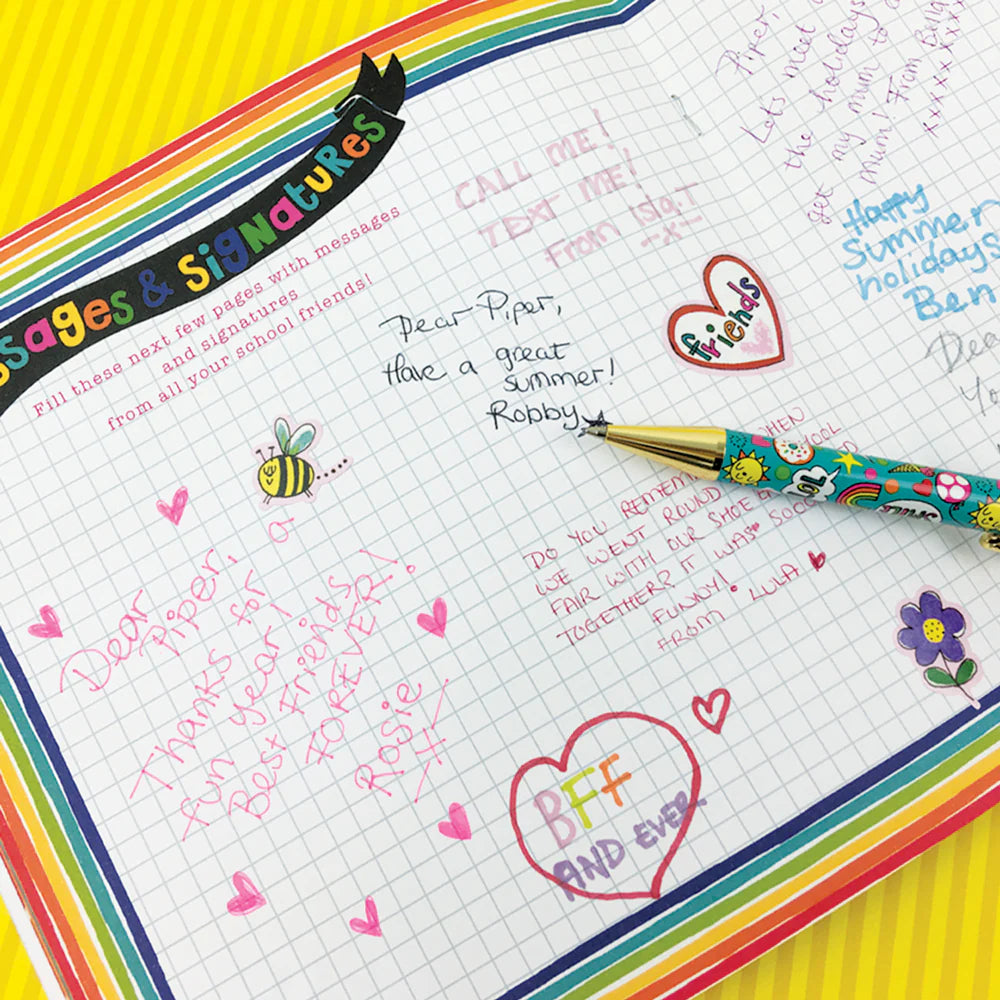 ssages & SigNatuRes
Fill these next few pages with messages
and signatures
from all your school friends!
CALL ME!
TEXT ME!
From Isla.T
-x-
Piper,
Lets meet
the holidays
get my mum to
mum! From Bella
xxxxx xxxxx
Happy
Summer
holidays
Ben
Dear Piper,
Have a great
summer!
Robby
friends
Dea
Yo
WHEN
DO YOU REMEM
WE WENT ROUND
FAIR WITH OUR SHOE
TOGETHER? IT WAS SOOO
FUNNY!
FROM LULA
LOL
SMILE
Dear
Piper,
Thanks for
fun year!
Best Friends
FOREVER!
Rosie
-x-
BFF
AND EVER